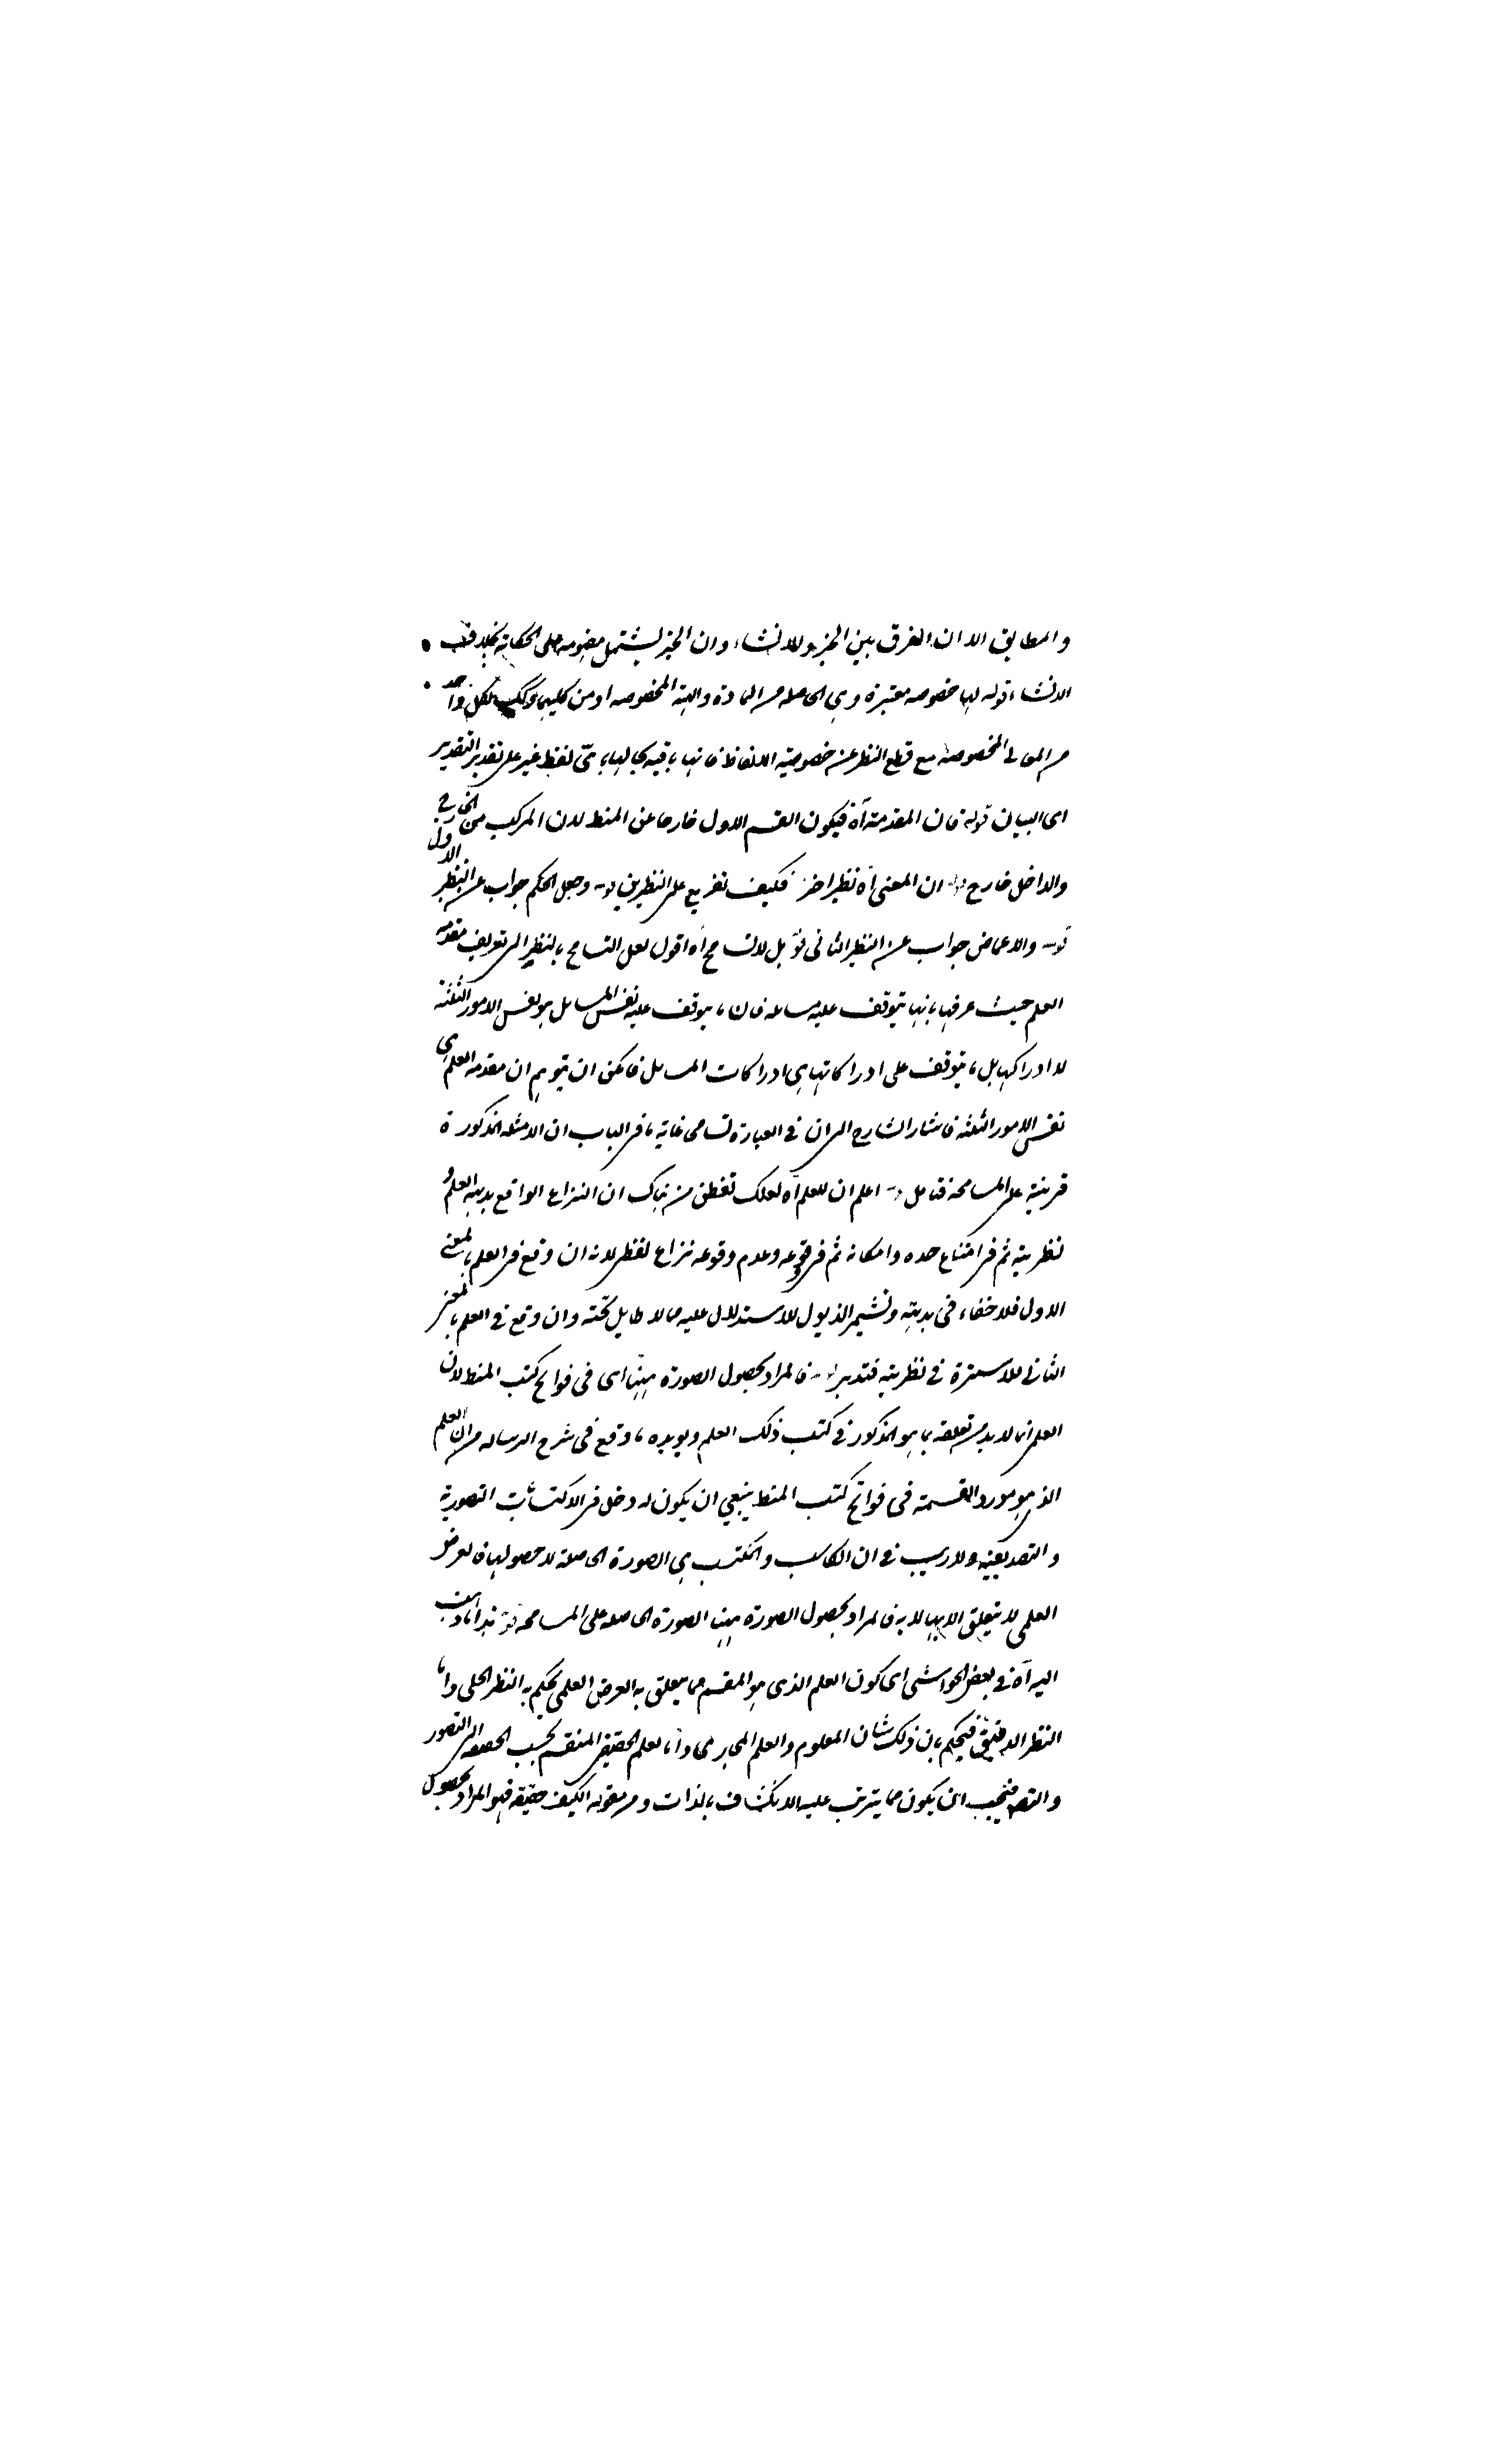 والمطابق الا ان الفرق بين الخبر والانشاء وان الخبر يشتمل مفهومه على الحكاية بخلاف
الانشاء قوله لها خصوصه معتبرة وهى الحاصله من المادة والهيئة المخصوصه او من كليهما وكك لكل واحد
من المعانى المخصوصة مع قطع النظر عن خصوصية الالفاظ فانها باقية بحالها باى لفظ غير على تقدير التقدير
اى البيان قوله فان المقدمة آه فيكون القسم الاول خارجا عن المنط لان المركب من الخارج
والداخل خارج قوله ان المعنى آه نظير اخر فكيف تفريع على النظيرين قوله وجعل الحكم جواب عن النظر الاول
قوله والاغماض جواب عن النظر الثانى قوله بل لا تسامح آه اقول لعل التسامح بالنظر الى تعريف مقدمة
العلم حيث عرفها بانها يتوقف عليه مسائله فان ما يتوقف عليه نفس المسائل هو نفس الامور الثلثة
لا ادراكها بل ما يتوقف على ادراكاتها هى ادراكات المسائل فامكن ان يتوهم ان مقدمه العلم هى
نفس الامور الثلثه فاشار الشارح الى ان فى العبارة تسامحا غاية ما فى الباب ان الامثله المذكورة
قرينة على المسامحة فتامل قوله اعلم ان للعلم آه لعلك تفطن من هناك ان النزاع الواقع بديهة العلم و
نظريته ثم فى امتناع حده وامكانه ثم فى وقوعه وعدم وقوعه نزاع لفظى لانه ان وقع فى العلم بالمعنى
الاول فلا خفاء فى بديهته وتشمير الذيول للاستدلال عليه مما لا طايل تحته وان وقع فى العلم بالمعنى
الثانى فلا سترة فى نظريته فتدبر قوله فالمراد بحصول الصورة ههنا اى فى فواتح كتب المنط لان
العلم انما لا بد من تعلقه بما هو المذكور فى كتب ذلك العلم ويويده ما وقع فى شرح الرساله من ان العلم
الذى هو مورد القسمة فى فواتح كتب المنط ينبغى ان يكون له دخل فى الاكتسابات التصورية
والتصديقية ولا ريب فى ان الكاسب والمكتسب هى الصورة الحاصلة لا حصولها فالغرض
العلمى لا يتعلق الا بها لا به فالمراد بحصول الصورة ههنا الصورة الحاصله على المسامحه قوله هذا ما ذهب
اليه آه فى بعض الحواشى اى كون العلم الذى هو المقسم مما يتعلق به الغرض العلمى يحكم به النظر الجلى واما
النظر الدقيق فيحكم بان ذلك شان المعلوم والعلم المجازى واما العلم الحقيقى المنقسم بحسب الحصول الى التصور
والتصديق فيجب ان يكون مما يترتب عليه الانكشاف بالذات ومن مقولة الكيف حقيقة فهو المراد بحصول